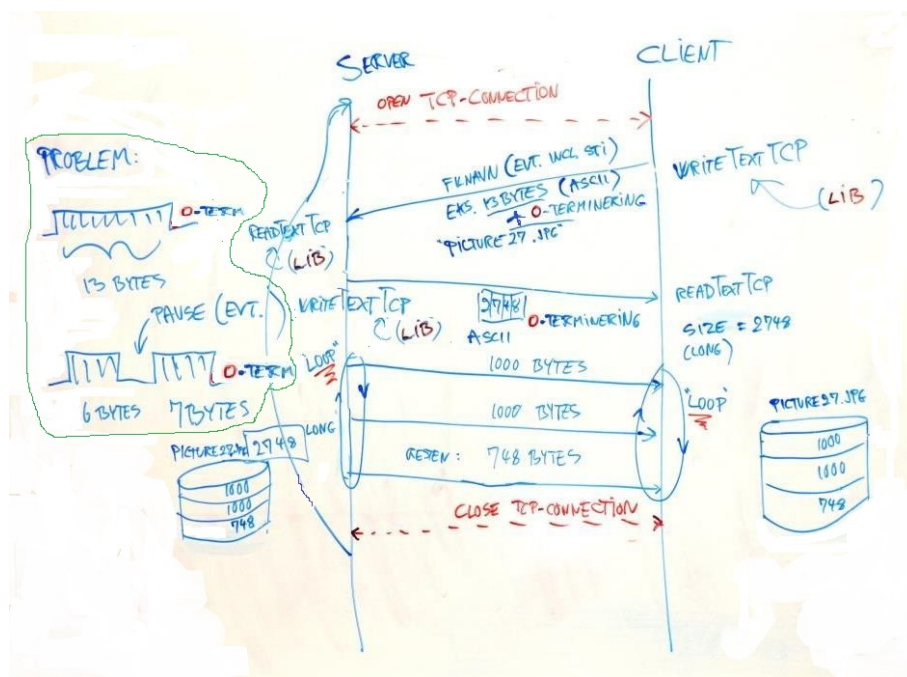 SERVER
CLIENT
OPEN TCP-CONNECTION
PROBLEM:
0-TERM
13 BYTES
PAUSE (EVT.)
0-TERM
6 BYTES 7 BYTES
FILNAVN (EVT. INCL STI)
EKS. 13 BYTES (ASCII)
+ 0-TERMINERING
"PICTURE27.JPG"
WRITETEXTTCP
(LIB)
READTEXTTCP
(LIB)
WRITETEXTTCP
(LIB)
2748
ASCII
0-TERMINERING
READTEXTTCP
SIZE = 2748
(LONG)
"LOOP"
1000 BYTES
1000 BYTES
RESTEN: 748 BYTES
"LOOP"
2748
LONG
1000
1000
748
PICTURE27.JPG
1000
1000
748
CLOSE TCP-CONNECTION